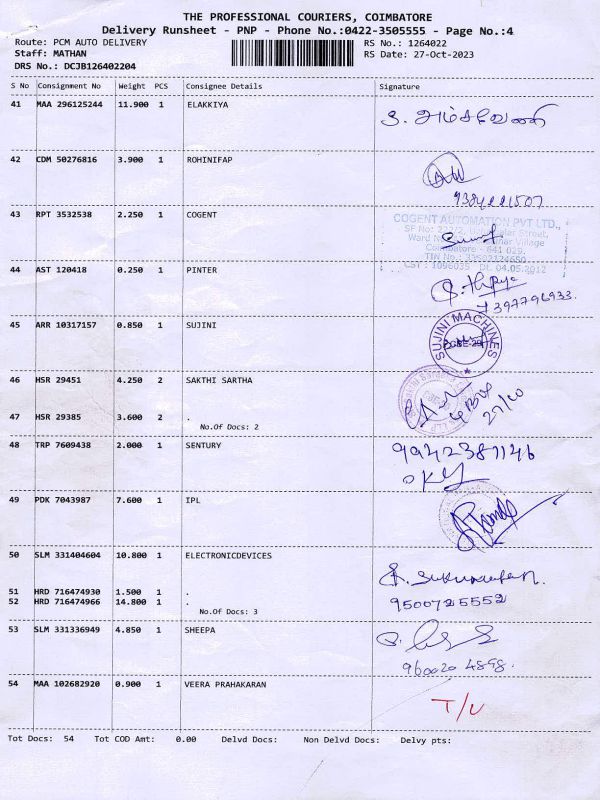 THE PROFESSIONAL COURIERS, COIMBATORE
Delivery Runsheet - PNP - Phone No.:0422-3505555 - Page No.:4
Route: PCM AUTO DELIVERY RS No.: 1264022
Staff: MATHAN RS Date: 27-Oct-2023
DRS No.: DCJB126402204
S No Consignment No Weight PCS Consignee Details Signature
41 MAA 296125244 11.900 1 ELAKKIYA
42 CDM 50276816 3.900 1 ROHINIFAP
43 RPT 3532538 2.250 1 COGENT
COGENT AUTOMATION PVT LTD.,
Coimbatore - 641 029.
CST : 1096035 Dt. 04.05.2012
44 AST 120418 0.250 1 PINTER
45 ARR 10317157 0.850 1 SUJINI
SUJINI MACHINES
46 HSR 29451 4.250 2 SAKTHI SARTHA
27/10
47 HSR 29385 3.600 2 .
No.Of Docs: 2
48 TRP 7609438 2.000 1 SENTURY
9942381146
49 PDK 7043987 7.600 1 IPL
50 SLM 331404604 10.800 1 ELECTRONICDEVICES
51 HRD 716474930 1.500 1 .
52 HRD 716474966 14.800 1 .
9500725552
No.Of Docs: 3
53 SLM 331336949 4.850 1 SHEEPA
960020 4898.
54 MAA 102682920 0.900 1 VEERA PRAHAKARAN
T/L
Tot Docs: 54 Tot COD Amt: 0.00 Delvd Docs: Non Delvd Docs: Delvy pts: